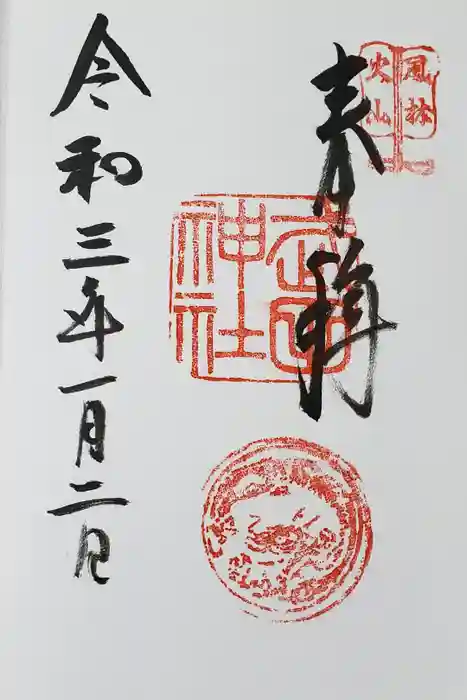 風林
火山
奉拝
武田
神社
令和三年一月二日